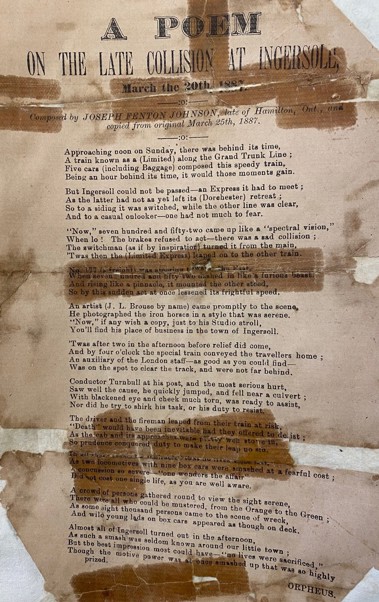 A POEM
ON THE LATE COLLISION AT INGERSOLL,
March the 20th, 1887.
:o:
Composed by JOSEPH FENTON JOHNSON, late of Hamilton, Ont., and
copied from original March 25th, 1887.
:o:
Approaching noon on Sunday, there was behind its time,
A train known as a (Limited) along the Grand Trunk Line ;
Five cars (including Baggage) composed this speedy train,
Being an hour behind its time, it would those moments gain.
But Ingersoll could not be passed—an Express it had to meet ;
As the latter had not as yet left its (Dorchester) retreat ;
So to a siding it was switched, while the other line was clear,
And to a casual onlooker—one had not much to fear.
"Now," seven hundred and fifty-two came up like a "spectral vision,"
When lo ! The brakes refused to act—there was a sad collision ;
The switchman (as if by inspiration) turned it from the main,
'Twas then the (Limited Express) leaped on to the other train.
When seven hundred and fifty two
And rising like a pinnacle, it mounted the other steed,
So by this sudden act at once lessened its frightful speed.
An artist (J. L. Brouse by name) came promptly to the scene,
He photographed the iron horses in a style that was serene.
"Now," if any wish a copy, just to his Studio stroll,
You'll find his place of business in the town of Ingersoll.
'Twas after two in the afternoon before relief did come,
And by four o'clock the special train conveyed the travellers home ;
An auxiliary of the London staff—as good as you could find—
Was on the spot to clear the track, and were not far behind.
Conductor Turnbull at his post, and the most serious hurt,
Saw well the cause, he quickly jumped, and fell near a culvert ;
With blackened eye and cheek much torn, was ready to assist,
Nor did he try to shirk his task, or his duty to resist.
The driver and the fireman leaped from their train at risk,
"Death" would have been inevitable had they offered to desist ;
As two locomotives with nine box cars were smashed at a fearful cost ;
A concussion so severe—one wonders the affair
Did not cost one single life, as you are well aware.
A crowd of persons gathered round to view the sight serene,
There were all who could be mustered, from the Orange to the Green ;
As some eight thousand persons came to the scene of wreck,
And wild young lads on box cars appeared as though on deck.
Almost all of Ingersoll turned out in the afternoon,
As such a smash was seldom known around our little town ;
But the best impression most could have—"no lives were sacrificed,"
Though the motive power was at once smashed up that was so highly
prized.
ORPHEUS.